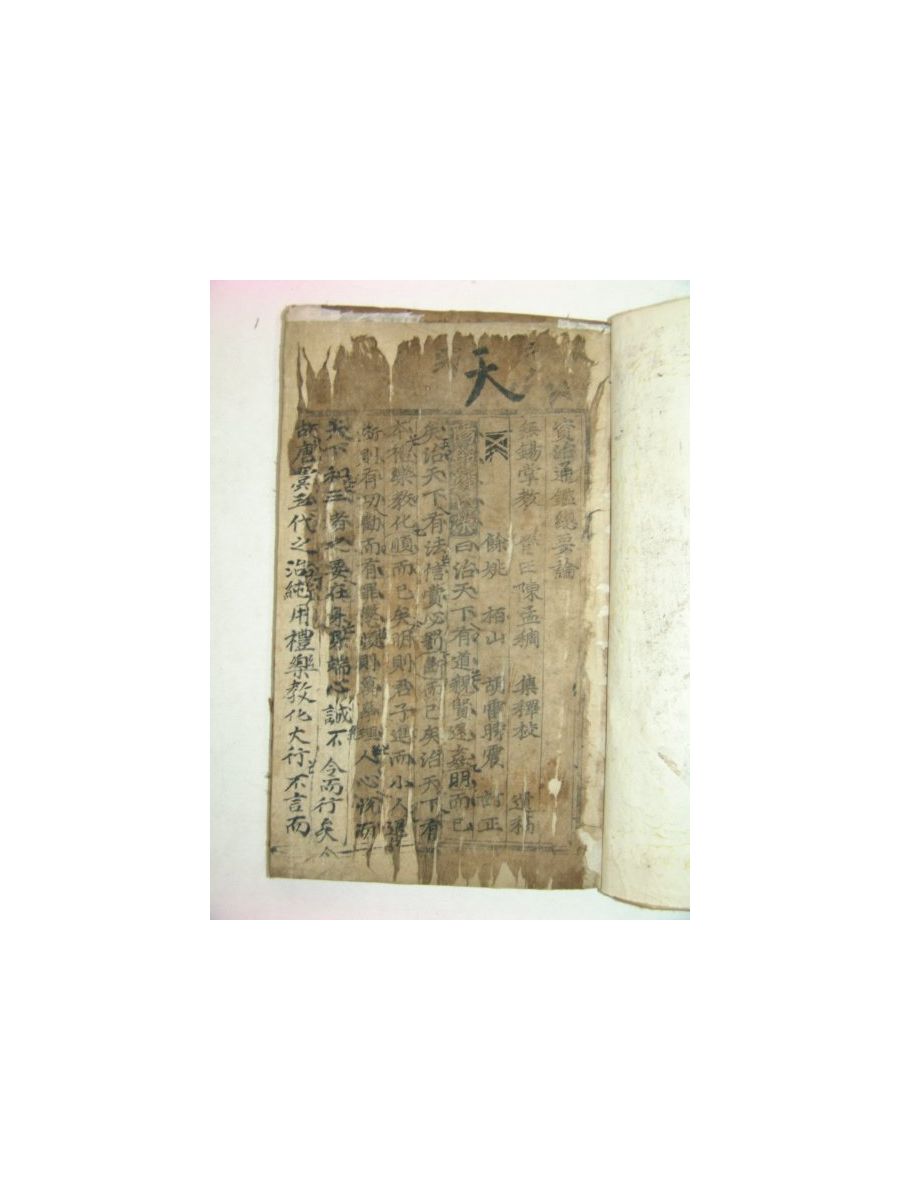 天
資治通鑑總要論
無錫掌教 臣陳孟稠 集釋校 遺務
餘姚 栢山 胡 震 訂正
曰治天下有道親賢遠姦明而已
矣治天下有法信賞必罰斷而已矣治天下有
本禮樂教化順而已矣明則君子進而小人退
斷則有功勸而有罪懲順則萬事理人心悅而
天下和三者之要在身身端心誠不令而行矣
故唐虞三代之治純用禮樂教化大行不言而